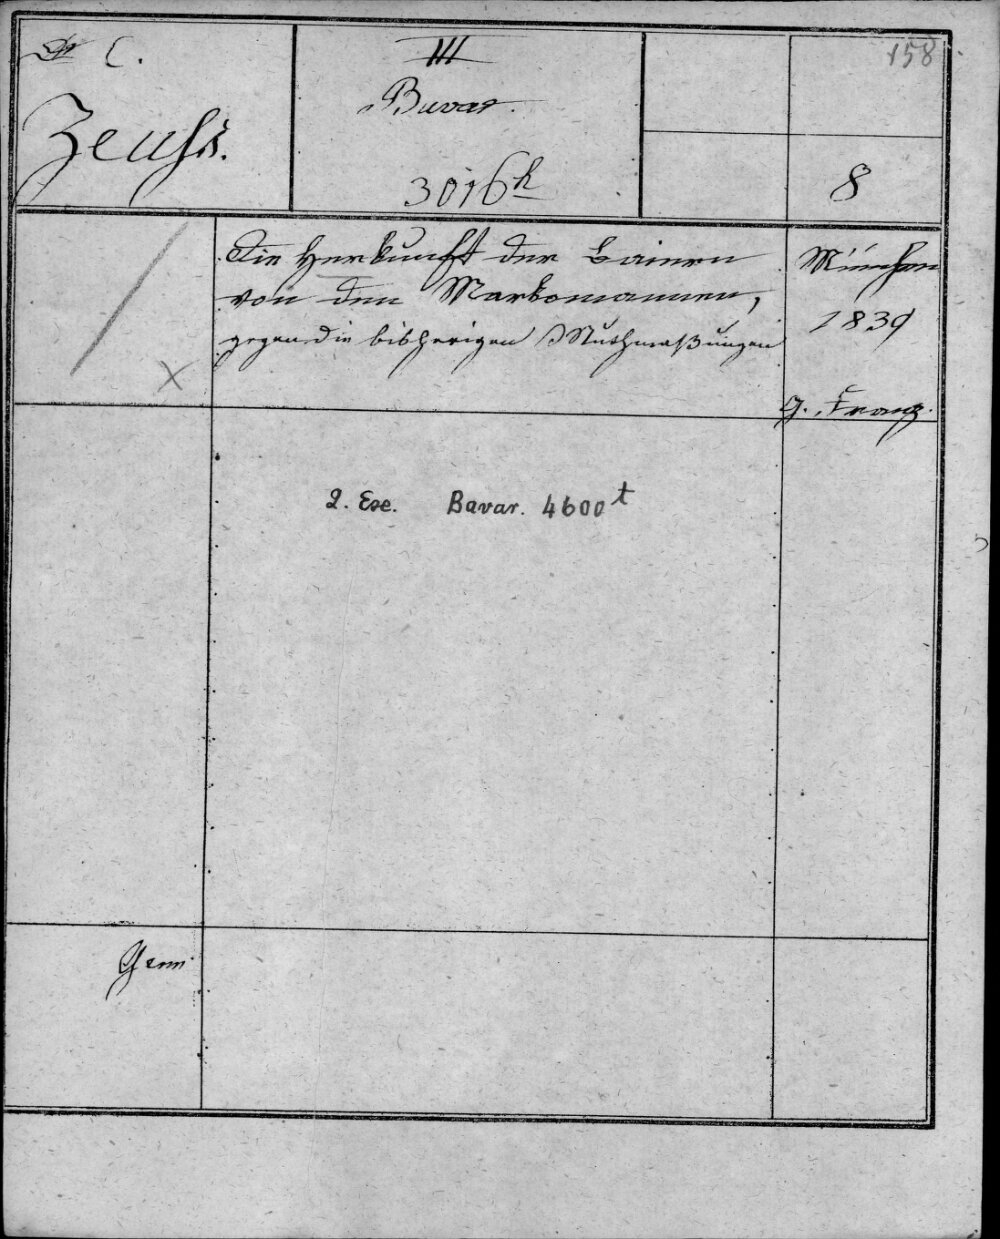 Dr C.
Zeuss.
III
Bavar.
3016h
158
8
Die Herkunft der Baiern
von den Markomannen,
gegen die bisherigen Muthmaßungen
München
1839
G. Franz.
2. Exe. Bavar. 4600t
Germ